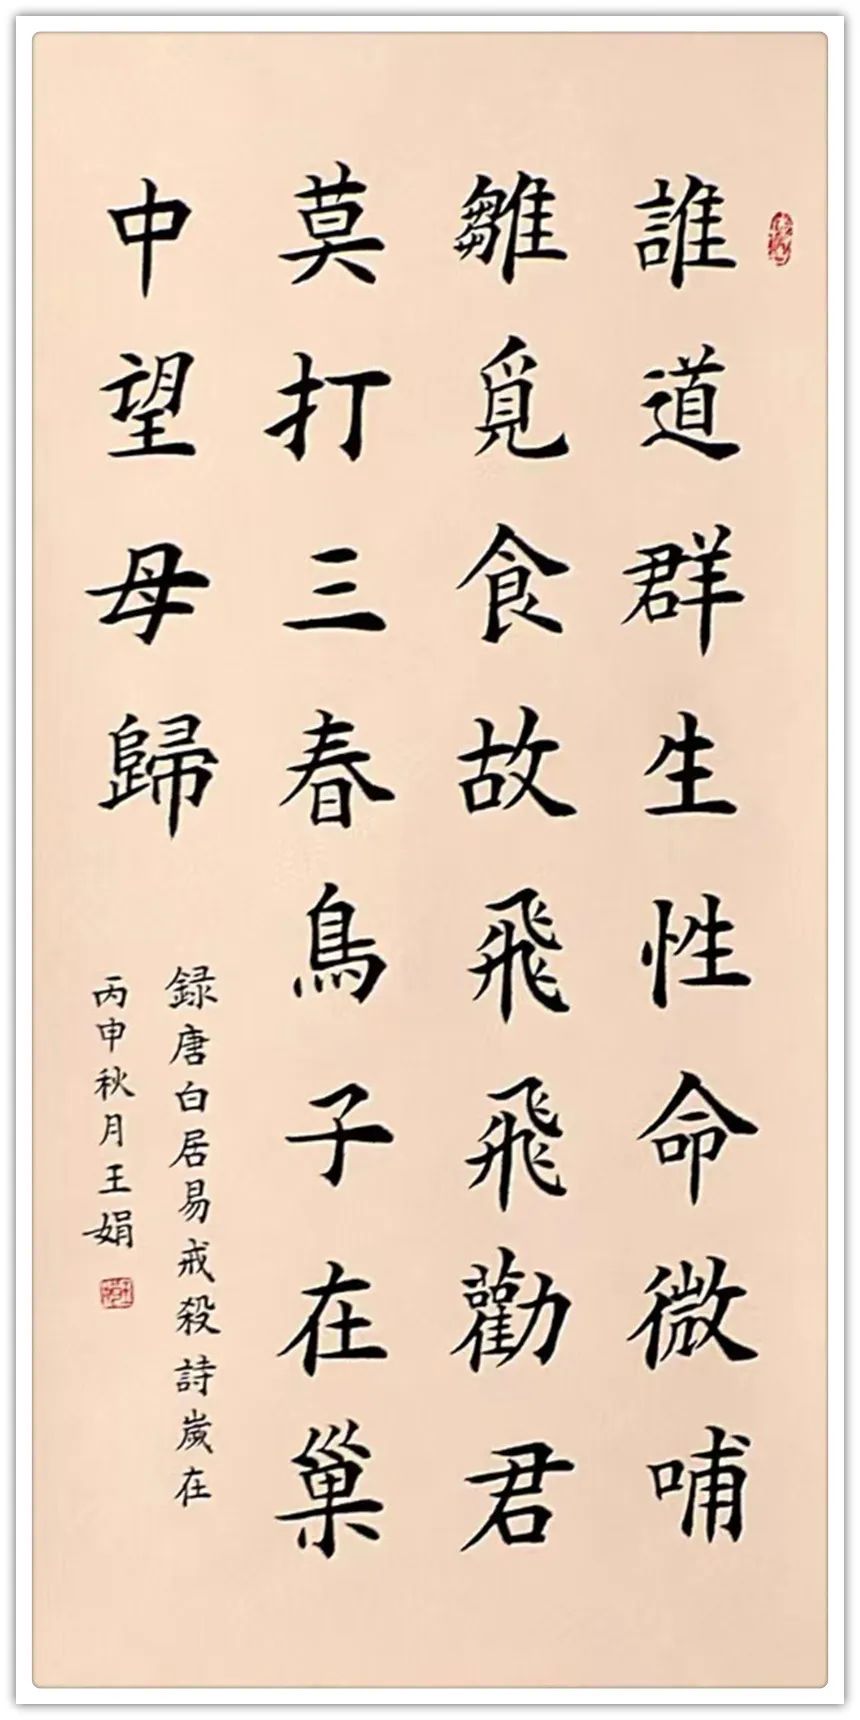 誰道群生性命微哺
雛覓食故飛飛勸君
莫打三春鳥子在巢
中望母歸
録唐白居易戒殺詩歲在
丙申秋月王娟